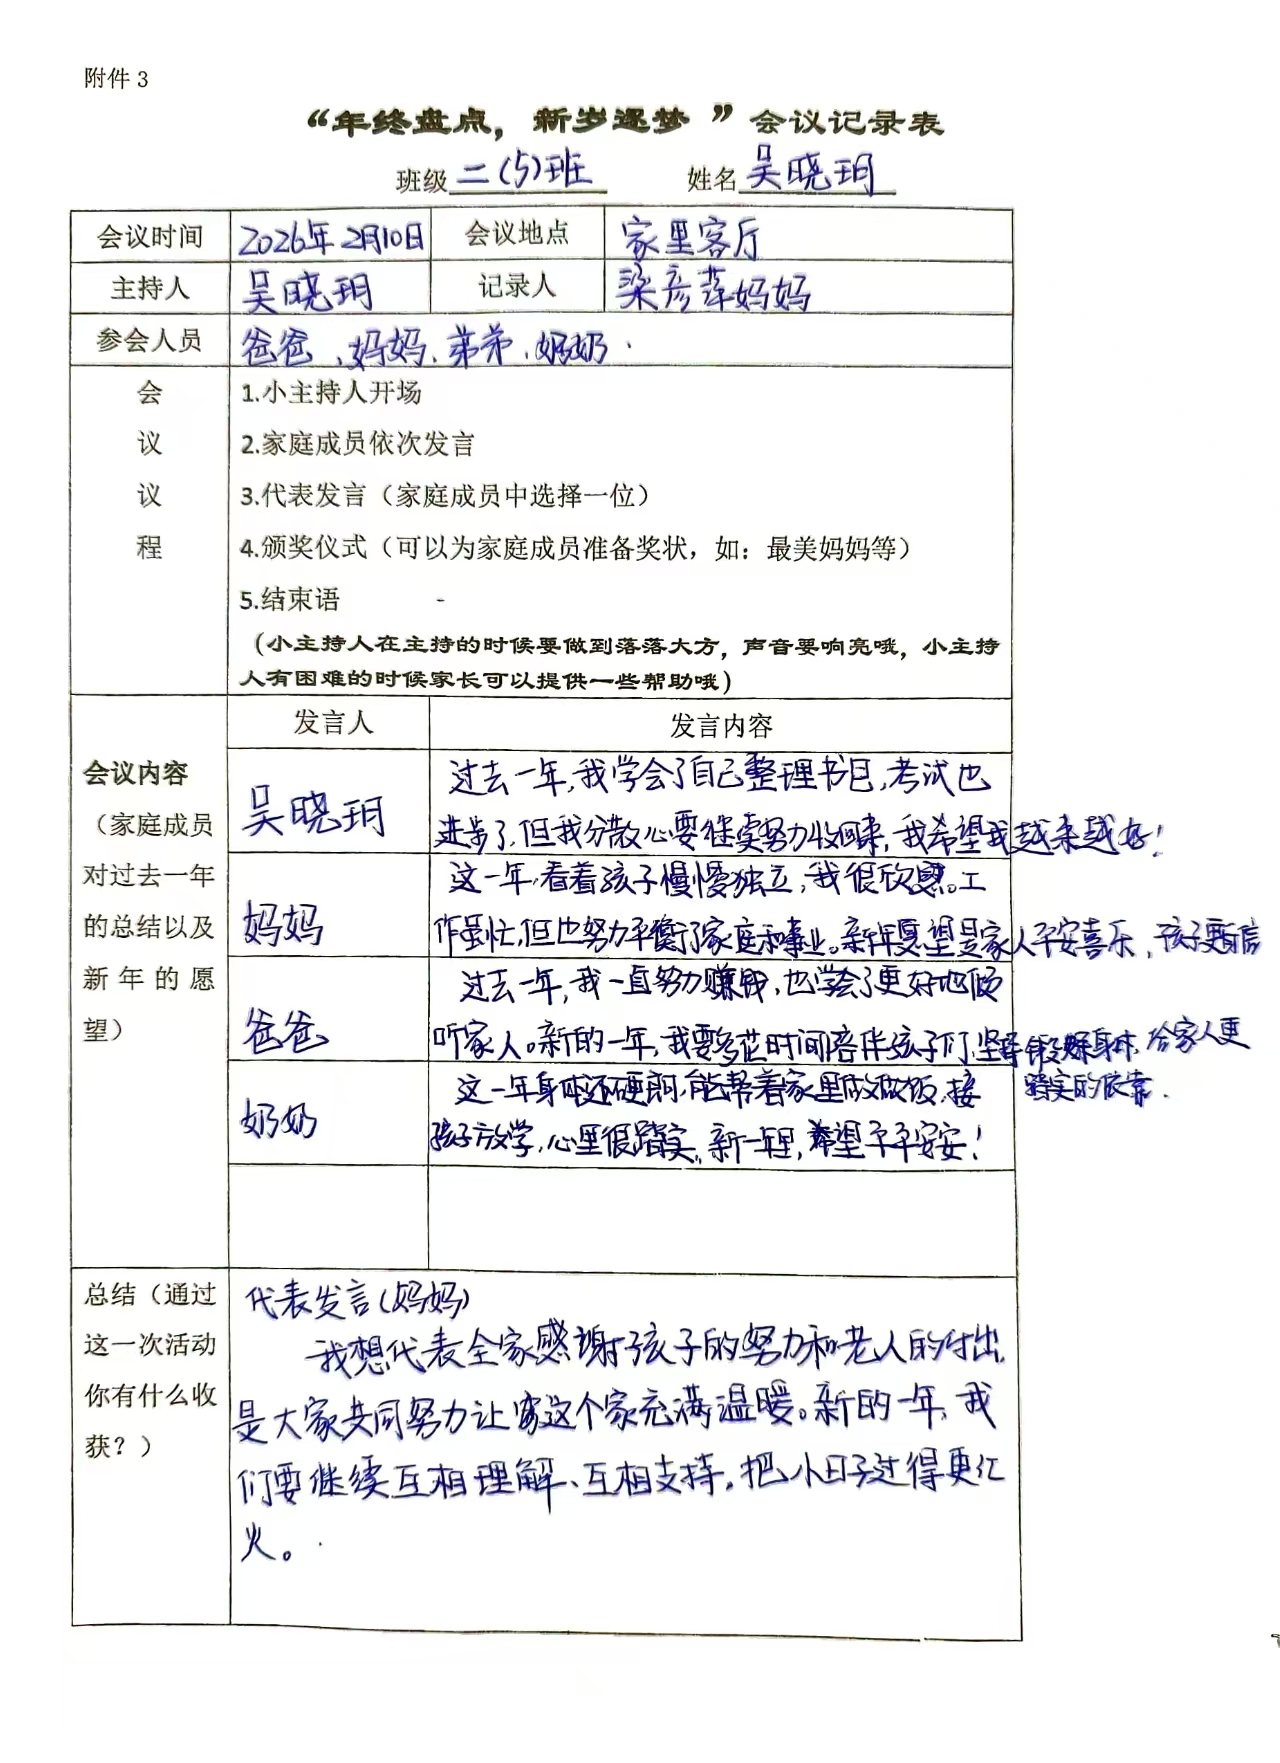 附件 3
“年终盘点，新岁逐梦 ”会议记录表
班级 二(5)班 姓名 吴晓玥
会议时间 2026年2月10日 会议地点 家里客厅
主持人 吴晓玥 记录人 梁彦萍妈妈
参会人员 爸爸、妈妈、弟弟、奶奶.
会
议
议
程
1.小主持人开场
2.家庭成员依次发言
3.代表发言（家庭成员中选择一位）
4.颁奖仪式（可以为家庭成员准备奖状，如：最美妈妈等）
5.结束语
（小主持人在主持的时候要做到落落大方，声音要响亮哦，小主持
人有困难的时候家长可以提供一些帮助哦）
会议内容
（家庭成员
对过去一年
的总结以及
新年的愿
望）
发言人 发言内容
吴晓玥
过去一年,我学会了自己整理书包,考试也
进步了,但我分散心要继续努力收回来,我希望我越来越好!
妈妈
这一年,看着孩子慢慢独立,我很欣慰。工
作虽忙,但也努力平衡了家庭和事业。新年愿望是家人平安喜乐,孩子更自信
爸爸
过去一年,我一直努力赚钱,也学会了更好地倾
听家人。新的一年,我要多花时间陪伴孩子们,坚持锻炼身体,给家人更
踏实的依靠.
奶奶
这一年身体还硬朗,能帮着家里做做饭,接
孩子放学,心里很踏实。新一年里,希望平平安安!
总结（通过
这一次活动
你有什么收
获？）
代表发言(妈妈)
我想代表全家感谢孩子的努力和老人的付出,
是大家共同努力让这个家充满温暖。新的一年,我
们要继续互相理解、互相支持,把小日子过得更红
火。